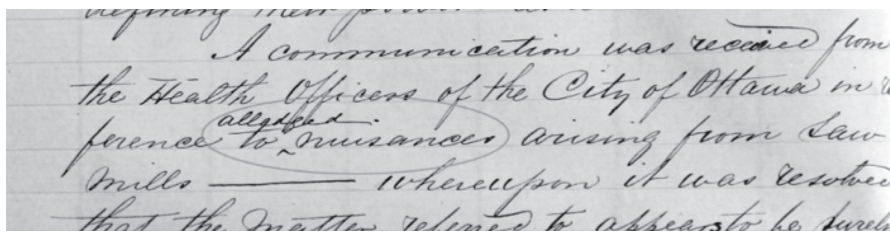 defining their
A communication was received from
the Health Officers of the City of Ottawa in
ference to alledged nuisances arising from Saw
Mills ——— whereupon it was resolved
that the Matter referred to appears to be purely